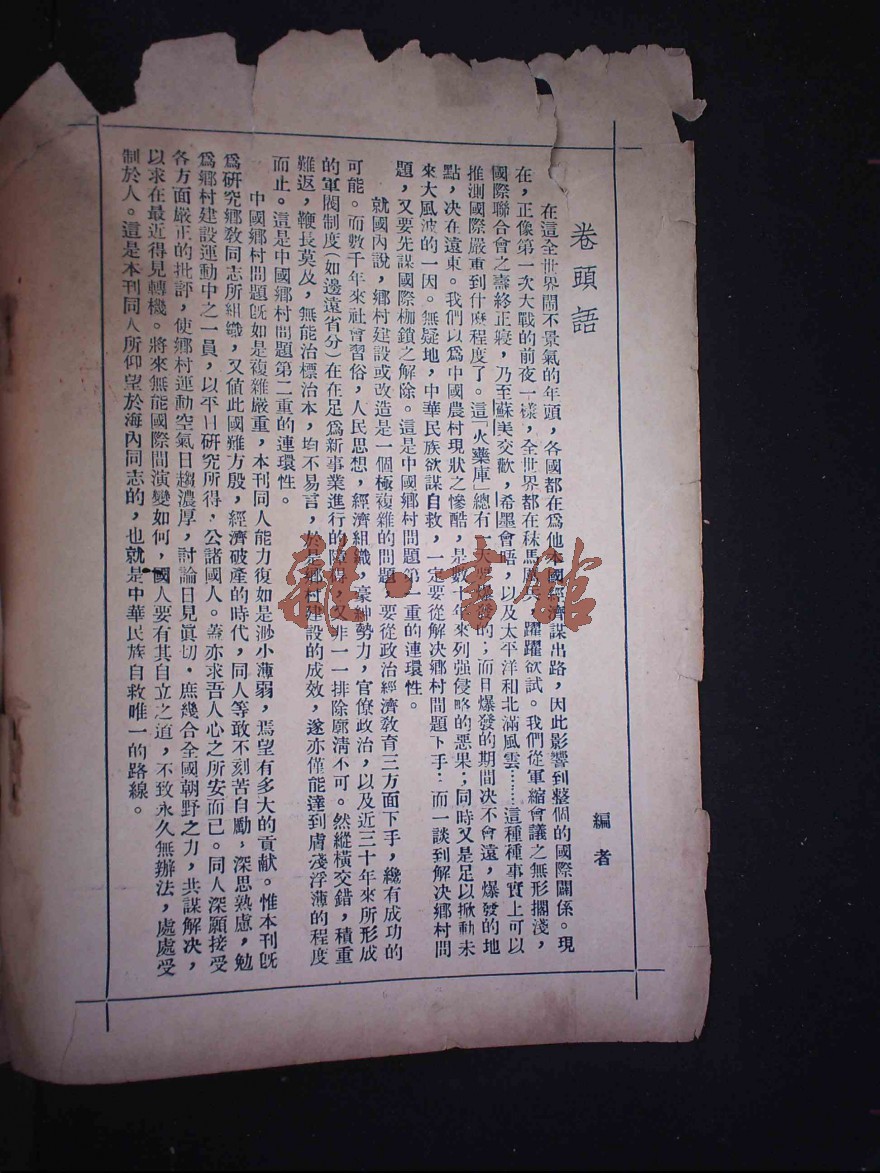 卷頭語
編者
在這全世界鬧不景氣的年頭，各國都在爲他本國經濟謀出路，因此影響到整個的國際關係。現
在，正像第一次大戰的前夜一樣，全世界都在秣馬厲兵，躍躍欲試。我們從軍縮會議之無形擱淺，
國際聯合會之壽終正寢，乃至蘇美交歡，希墨會晤，以及太平洋和北滿風雲……這種種事實上可以
推測國際嚴重到什麽程度了。這「火藥庫」總有一天要爆發的；而且爆發的期間决不會遠，爆發的地
點，决在遠東。我們以爲中國農村現狀之慘酷，是數十年來列强侵略的惡果；同時又是足以掀動未
來大風波的一因。無疑地，中華民族欲謀自救，一定要從解决鄉村問題下手：而一談到解决鄉村問
題，又要先謀國際枷鎖之解除。這是中國鄉村問題第一重的連環性。
就國內說，鄉村建設或改造是一個極複雜的問題，要從政治經濟敎育三方面下手，纔有成功的
可能。而數千年來社會習俗，人民思想，經濟組織，豪紳勢力，官僚政治，以及近三十年來所形成
的軍閥制度（如邊遠省分）在在足爲新事業進行的障碍，又非一一排除廓淸不可。然縱橫交錯，積重
難返，鞭長莫及，無能治標治本，均不易言，於是鄉村建設的成效，遂亦僅能達到膚淺浮薄的程度
而止。這是中國鄉村問題第二重的連環性。
中國鄉村問題旣如是複雜嚴重，本刊同人能力復如是渺小薄弱，焉望有多大的貢献。惟本刊旣
爲研究鄉敎同志所組織，又値此國難方殷，經濟破產的時代，同人等敢不刻苦自勵，深思熟慮，勉
爲鄉村建設運動中之一員，以平日研究所得，公諸國人。蓋亦求吾人心之所安而已。同人深願接受
各方面嚴正的批評，使鄉村運動空氣日趨濃厚，討論日見眞切．庶幾合全國朝野之力，共謀解决，
以求在最近得見轉機。將來無能國際間演變如何，國人要有其自立之道，不致永久無辦法，處處受
制於人。這是本刊同人所仰望於海內同志的，也就是中華民族自救唯一的路線。
雜·書館